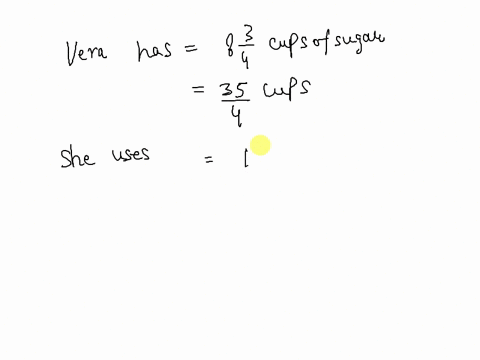 Vera has = 8 3/4 cups of sugar
= 35/4 cups
She uses = 1